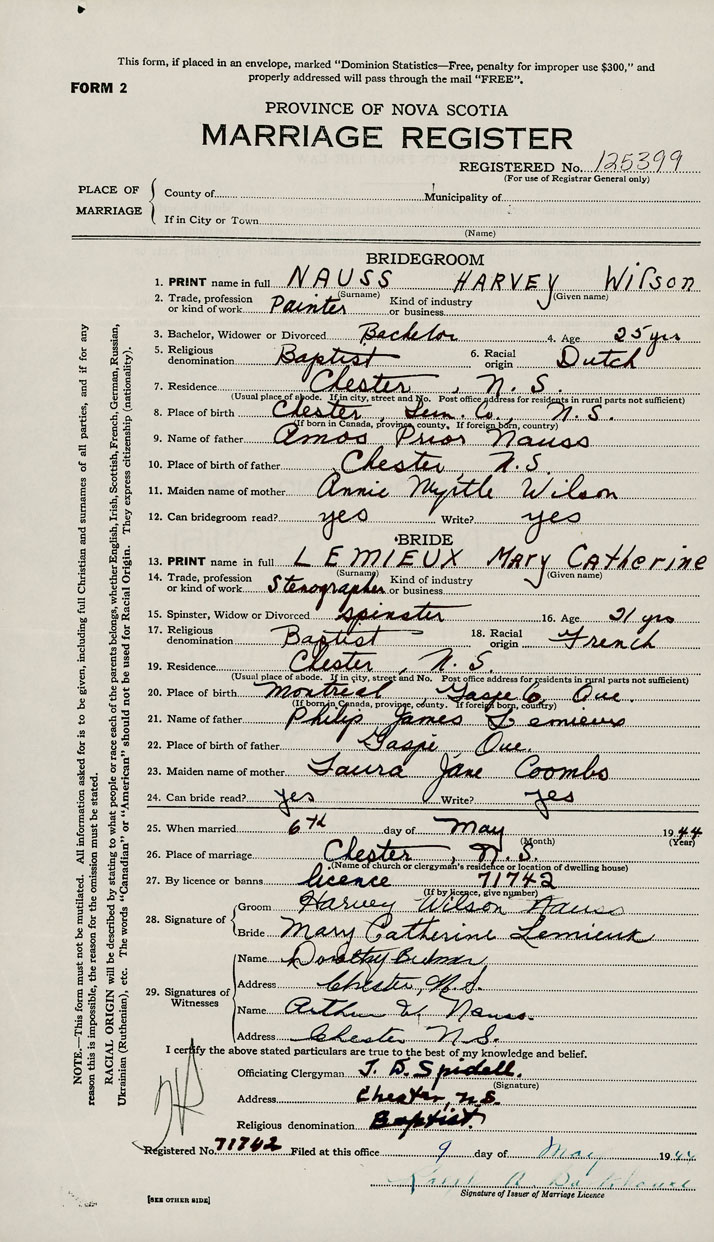 This form, if placed in an envelope, marked "Dominion Statistics—Free, penalty for improper use $300," and
properly addressed will pass through the mail "FREE".
FORM 2
PROVINCE OF NOVA SCOTIA
MARRIAGE REGISTER
REGISTERED No. 125399
(For use of Registrar General only)
PLACE OF MARRIAGE
County of Municipality of
If in City or Town
(Name)
BRIDEGROOM
1. PRINT name in full NAUSS HARVEY WilSON
(Surname) (Given name)
2. Trade, profession or kind of work Painter Kind of industry or business
3. Bachelor, Widower or Divorced Bachelor 4. Age 25 yrs
5. Religious denomination Baptist 6. Racial origin Dutch
7. Residence Chester, N. S.
(Usual place of abode. If in city, street and No. Post office address for residents in rural parts not sufficient)
8. Place of birth Chester, Lun. Co., N. S.
(If born in Canada, province, county. If foreign born, country)
9. Name of father Amos Prior Nauss
10. Place of birth of father Chester N.S.
11. Maiden name of mother Annie Myrtle Wilson
12. Can bridegroom read? yes Write? yes
BRIDE
13. PRINT name in full LEMIEUX MARY CATHERINE
(Surname) (Given name)
14. Trade, profession or kind of work Stenographer Kind of industry or business
15. Spinster, Widow or Divorced Spinster 16. Age 21 yrs
17. Religious denomination Baptist 18. Racial origin French
19. Residence Chester, N. S.
(Usual place of abode. If in city, street and No. Post office address for residents in rural parts not sufficient)
20. Place of birth Montreal, Gaspe Co Que.
(If born in Canada, province, county. If foreign born, country)
21. Name of father Philip James Lemieux
22. Place of birth of father Gaspi Que.
23. Maiden name of mother Laura Jane Coombs
24. Can bride read? yes Write? yes
25. When married 6th day of May 1944
(Month) (Year)
26. Place of marriage Chester, N. S.
(Name of church or clergyman's residence or location of dwelling house)
27. By licence or banns licence 71742
(If by licence, give number)
28. Signature of
Groom Harvey Wilson Nauss
Bride Mary Catherine Lemieux
29. Signatures of Witnesses
Name Dorothy
Address Chester, N.S.
Name Arthur Nauss
Address Chester N.S.
I certify the above stated particulars are true to the best of my knowledge and belief.
Officiating Clergyman J. D. Spidell.
(Signature)
Address Chester, N.S.
Religious denomination Baptist
Registered No. 71742 Filed at this office 9 day of May 1944
Signature of Issuer of Marriage Licence
[SEE OTHER SIDE]
NOTE.—This form must not be mutilated. All information asked for is to be given, including full Christian and surnames of all parties, and if for any
reason this is impossible, the reason for the omission must be stated.
RACIAL ORIGIN will be described by stating to what people or race each of the parents belongs, whether English, Irish, Scottish, French, German, Russian,
Ukrainian (Ruthenian), etc. The words "Canadian" or "American" should not be used for Racial Origin. They express citizenship (nationality).